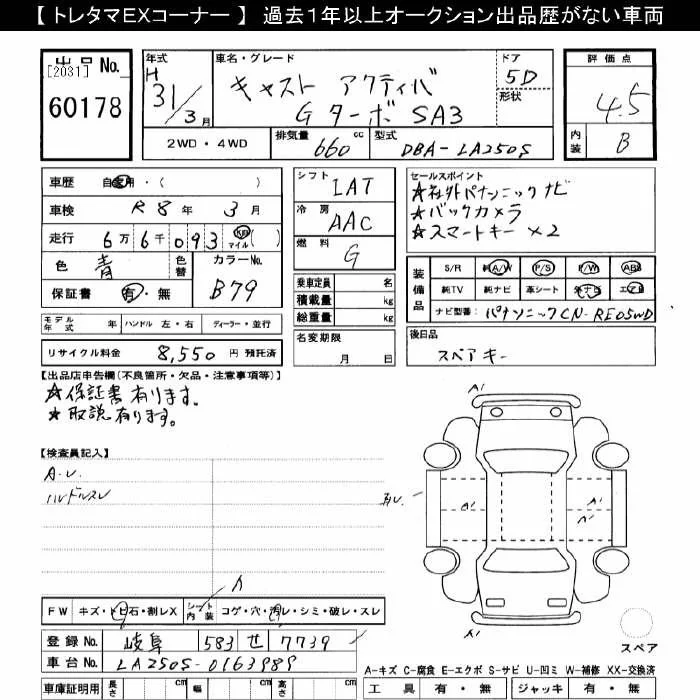 【 トレタマEXコーナー 】 過去1年以上オークション出品歴がない車両
出品 No. [2031]
60178
年式 H 31/3月
車名・グレード キャスト アクティバ
Gターボ SA3
ドア 5D
形状
評価点 4.5
内装 B
2WD・4WD
排気量 660 cc
型式 DBA-LA250S
車歴 自家用・( )
車検 R8年 3月
走行 6万6千093 Km マイル ( )
色 青 色替 カラーNo. B79
保証書 有・無
シフト IAT
冷房 AAC
燃料 G
乗車定員 名
積載量 kg
総重量 kg
セールスポイント
☆社外パナソニックナビ
☆バックカメラ
☆スマートキー×2
装備品 S/R 純A/W P/S P/W ABS
純TV 純ナビ 革シート 社外ナビ エアB
ナビ型番: パナソニックCN-RE05WD
モデル年式 年 ハンドル 左・右 ディーラー・並行
リサイクル料金 8,550円 預託済
名変期限 月 日
後日品
スペアキー
【出品店申告欄(不良箇所・欠品・注意事項等)】
☆保証書有ります。
☆取説有ります。
【検査員記入】
A.U.
ハンドルスレ
A1
A1
A1
A1
A
FW キズ・トビ石・割レX シート内装 コゲ・穴・汚レ・シミ・破レ・スレ
登録 No. 岐阜 583 せ 7739
車台 No. LA250S-0163989
スペア
A-キズ C-腐食 E-エクボ S-サビ U-凹ミ W-補修 XX-交換済
車庫証明用 長さ cm 幅 cm 高さ cm
工具 有・無 ジャッキ 有・無